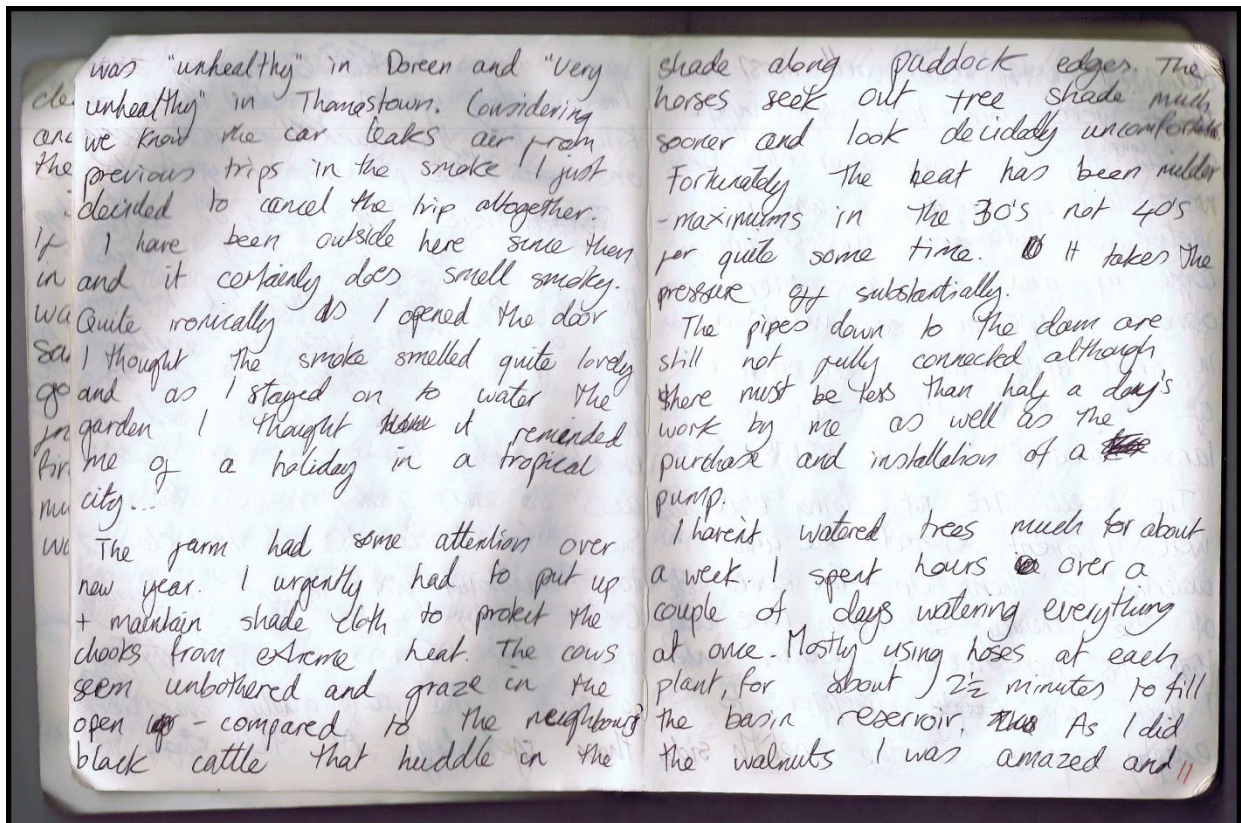 was "unhealthy" in Doreen and "Very
unhealthy" in Thomastown. Considering
we know the car leaks air from
previous trips in the smoke I just
decided to cancel the trip altogether.
I have been outside here since then
and it certainly does smell smoky.
Quite ironically as I opened the door
I thought the smoke smelled quite lovely
and as I stayed on to water the
garden I thought it reminded
me of a holiday in a tropical
city...
The farm had some attention over
new year. I urgently had to put up
+ maintain shade cloth to protect the
chooks from extreme heat. The cows
seem unbothered and graze in the
open - compared to the neighbours
black cattle that huddle in the
shade along paddock edges. The
horses seek out tree shade much
sooner and look decidedly uncomfortable.
Fortunately the heat has been milder
- maximums in the 30's not 40's
for quite some time. It takes the
pressure off substantially.
The pipes down to the dam are
still not fully connected although
there must be less than half a day's
work by me as well as the
purchase and installation of a
pump.
I haven't watered trees much for about
a week. I spent hours over a
couple of days watering everything
at once. Mostly using hoses at each
plant, for about 2½ minutes to fill
the basin reservoir. As I did
the walnuts I was amazed and
11